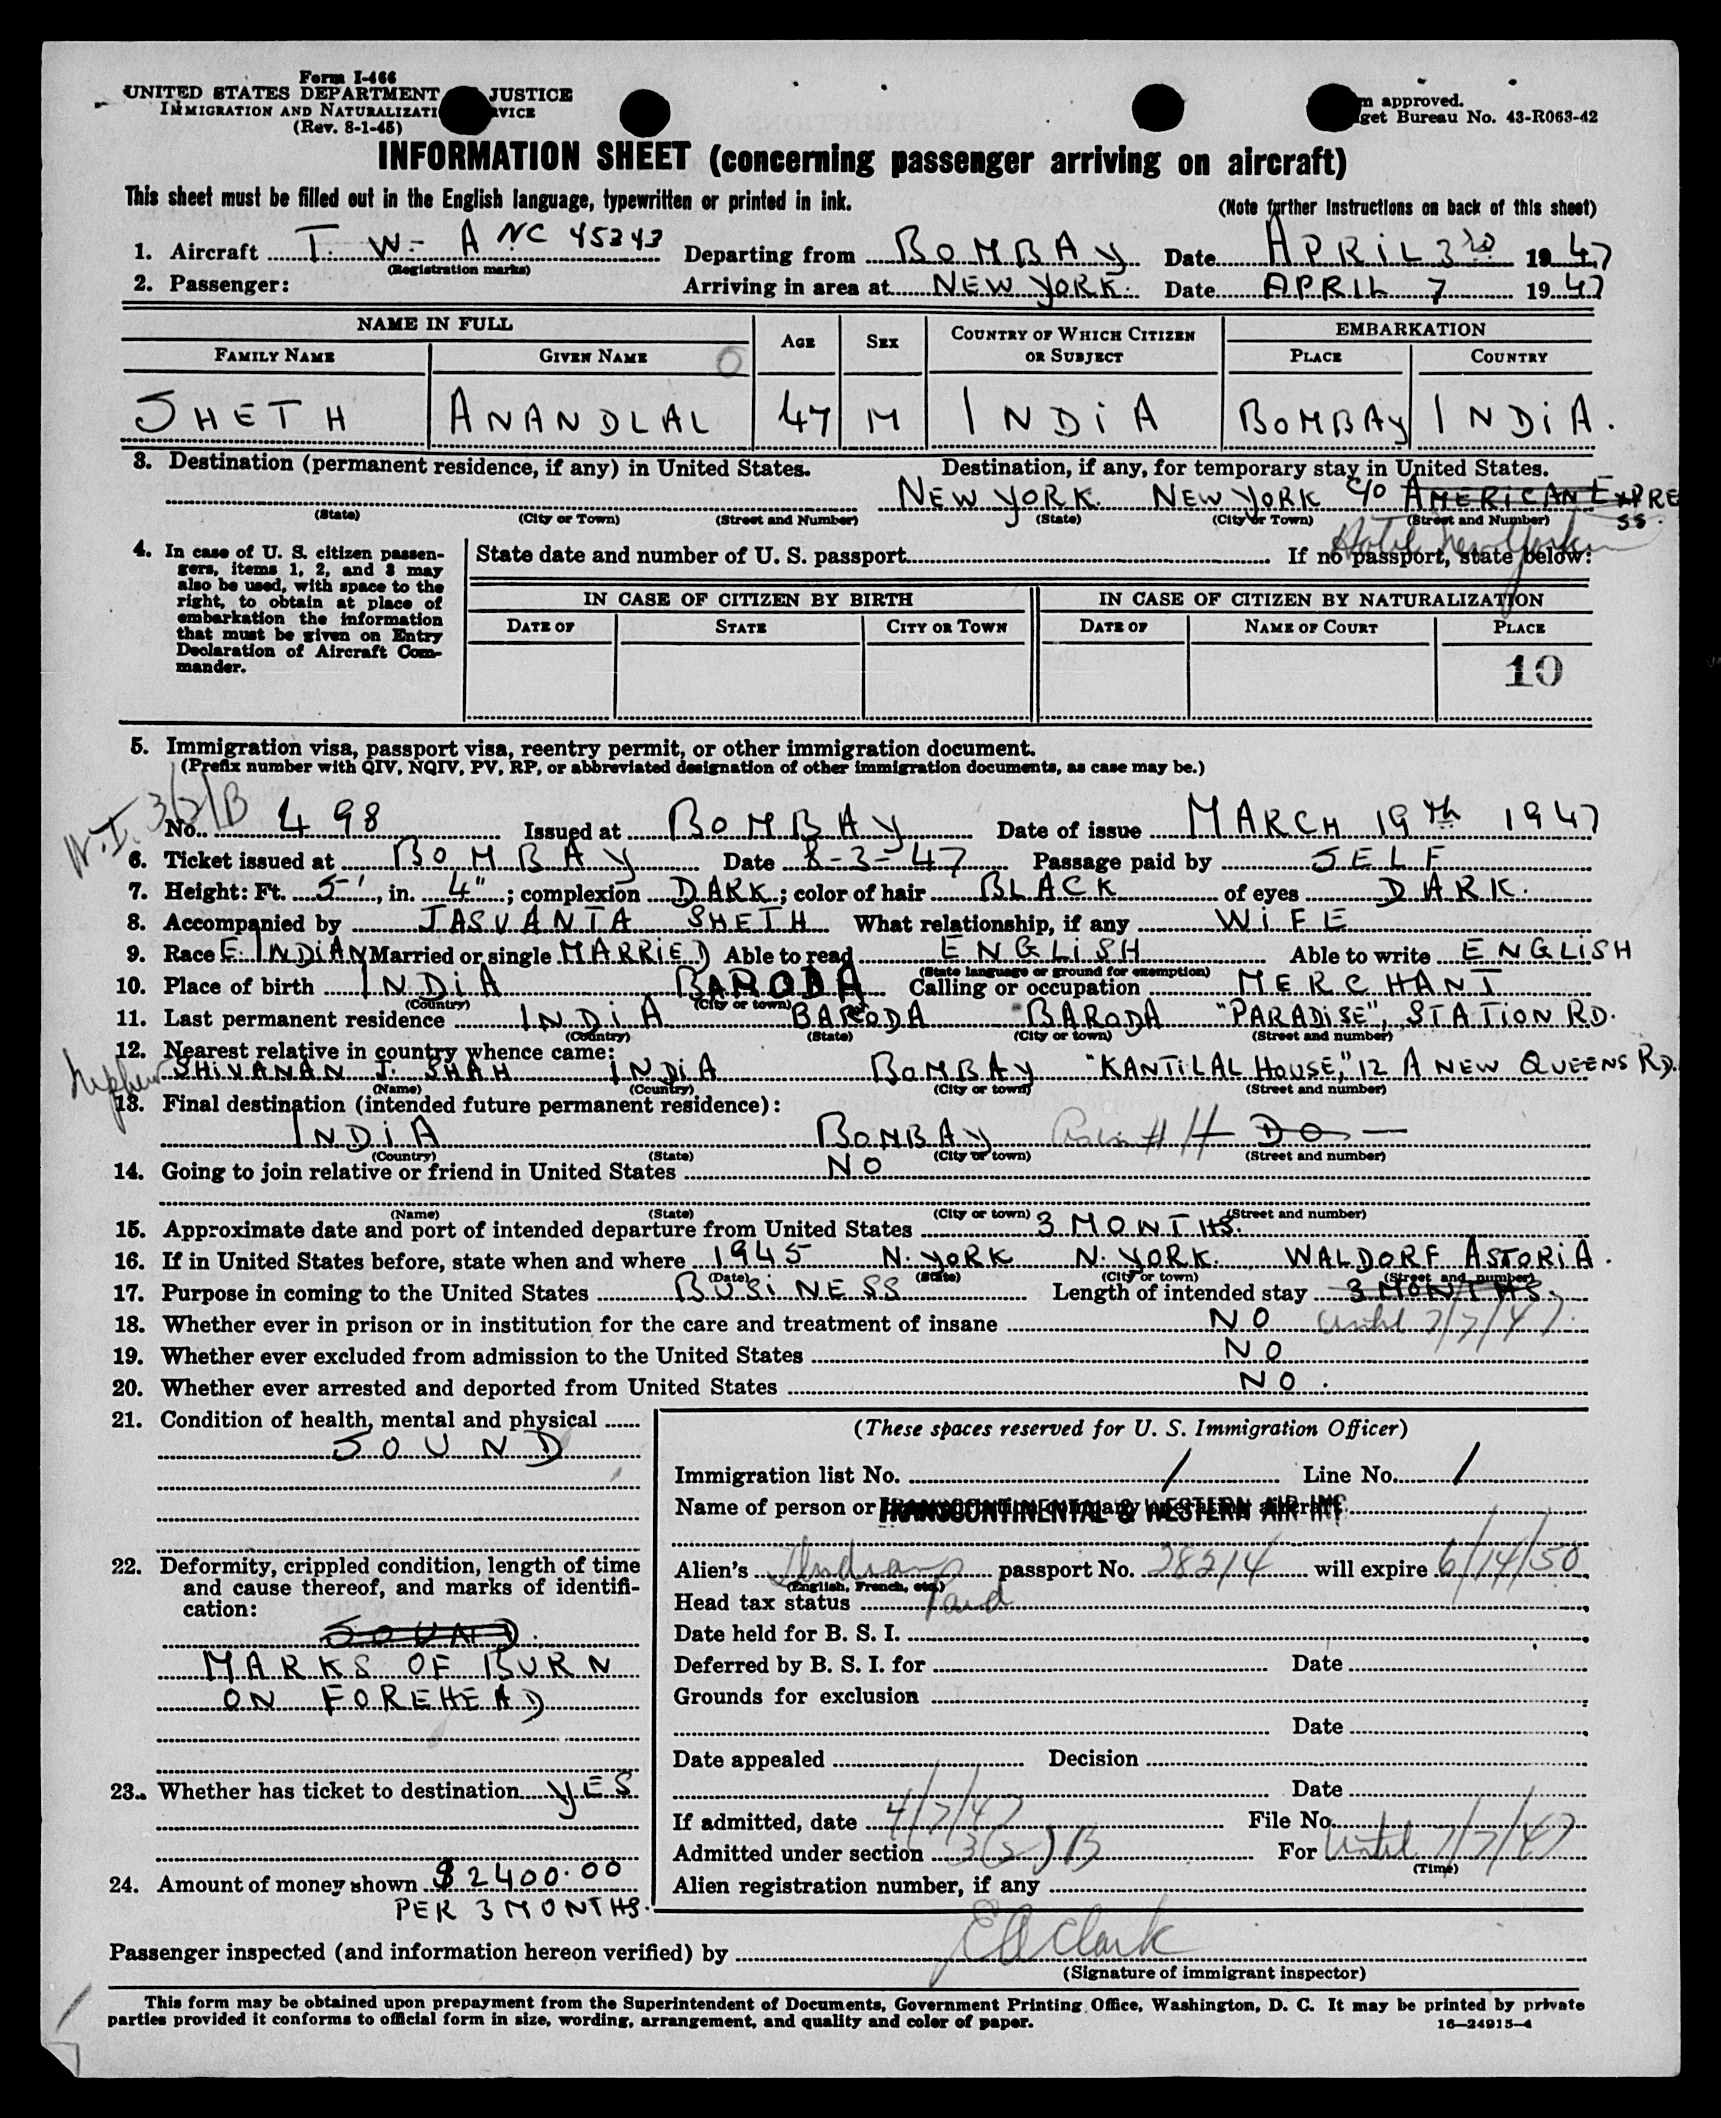 Form I-466
UNITED STATES DEPARTMENT JUSTICE
IMMIGRATION AND NATURALIZATI RVICE
(Rev. 8-1-45)
m approved.
get Bureau No. 43-R063-42
INFORMATION SHEET (concerning passenger arriving on aircraft)
This sheet must be filled out in the English language, typewritten or printed in ink.
(Note further instructions on back of this sheet)
1. Aircraft T. W. A NC 45343 Departing from BOMBAY Date APRIL 3rd 1947
(Registration marks)
2. Passenger: Arriving in area at NEW YORK. Date APRIL 7 1947
NAME IN FULL AGE SEX COUNTRY OF WHICH CITIZEN OR SUBJECT EMBARKATION
FAMILY NAME GIVEN NAME PLACE COUNTRY
SHETH ANANDLAL 47 M INDIA BOMBAY INDIA.
3. Destination (permanent residence, if any) in United States. Destination, if any, for temporary stay in United States.
NEW YORK. NEW YORK c/o AMERICAN EXPRESS.
(State) (City or Town) (Street and Number) (State) (City or Town) (Street and Number)
Hotel New Yorker
4. In case of U. S. citizen passengers, items 1, 2, and 3 may also be used, with space to the right, to obtain at place of embarkation the information that must be given on Entry Declaration of Aircraft Commander.
State date and number of U. S. passport If no passport, state below:
IN CASE OF CITIZEN BY BIRTH IN CASE OF CITIZEN BY NATURALIZATION
DATE OF STATE CITY OR TOWN DATE OF NAME OF COURT PLACE
10
5. Immigration visa, passport visa, reentry permit, or other immigration document.
(Prefix number with QIV, NQIV, PV, RP, or abbreviated designation of other immigration documents, as case may be.)
3(2)B
No. 498 Issued at BOMBAY Date of issue MARCH 19th 1947
6. Ticket issued at BOMBAY Date 8-3-47 Passage paid by SELF
7. Height: Ft. 5', in. 4"; complexion DARK; color of hair BLACK of eyes DARK.
8. Accompanied by JASVANTA SHETH What relationship, if any WIFE
9. Race E. INDIAN Married or single MARRIED Able to read ENGLISH Able to write ENGLISH
(State language or ground for exemption)
10. Place of birth INDIA BARODA Calling or occupation MERCHANT
(Country) (City or town)
11. Last permanent residence INDIA BARODA BARODA "PARADISE", STATION RD.
(Country) (State) (City or town) (Street and number)
12. Nearest relative in country whence came:
nephew SHIVANAN J. SHAH INDIA BOMBAY "KANTILAL HOUSE," 12 A NEW QUEENS RD.
(Name) (Country) (City or town) (Street and number)
13. Final destination (intended future permanent residence):
INDIA BOMBAY DO
(Country) (State) (City or town) (Street and number)
14. Going to join relative or friend in United States NO
(Name) (State) (City or town) (Street and number)
15. Approximate date and port of intended departure from United States 3 MONTHS.
16. If in United States before, state when and where 1945 N. YORK N. YORK. WALDORF ASTORIA.
(Date) (State) (City or town) (Street and number)
17. Purpose in coming to the United States BUSINESS Length of intended stay 3 MONTHS.
18. Whether ever in prison or in institution for the care and treatment of insane NO until 7/7/47.
19. Whether ever excluded from admission to the United States NO
20. Whether ever arrested and deported from United States NO.
21. Condition of health, mental and physical
SOUND
22. Deformity, crippled condition, length of time and cause thereof, and marks of identification:
SOUND.
MARKS OF BURN
ON FOREHEAD
23. Whether has ticket to destination YES
24. Amount of money shown $2400.00
PER 3 MONTHS.
(These spaces reserved for U. S. Immigration Officer)
Immigration list No. 1 Line No. 1
Name of person or transportation company operating aircraft
TRANSCONTINENTAL & WESTERN AIR INC
Alien's Indian passport No. 28214 will expire 6/14/50
(English, French, etc.)
Head tax status Paid
Date held for B. S. I.
Deferred by B. S. I. for Date
Grounds for exclusion
Date
Date appealed Decision
Date
If admitted, date 4/7/47 File No.
Admitted under section 3(2)B For Until 7/7/47
(Time)
Alien registration number, if any
Passenger inspected (and information hereon verified) by EA Clark
(Signature of immigrant inspector)
This form may be obtained upon prepayment from the Superintendent of Documents, Government Printing Office, Washington, D. C. It may be printed by private
parties provided it conforms to official form in size, wording, arrangement, and quality and color of paper.
16—24915-4